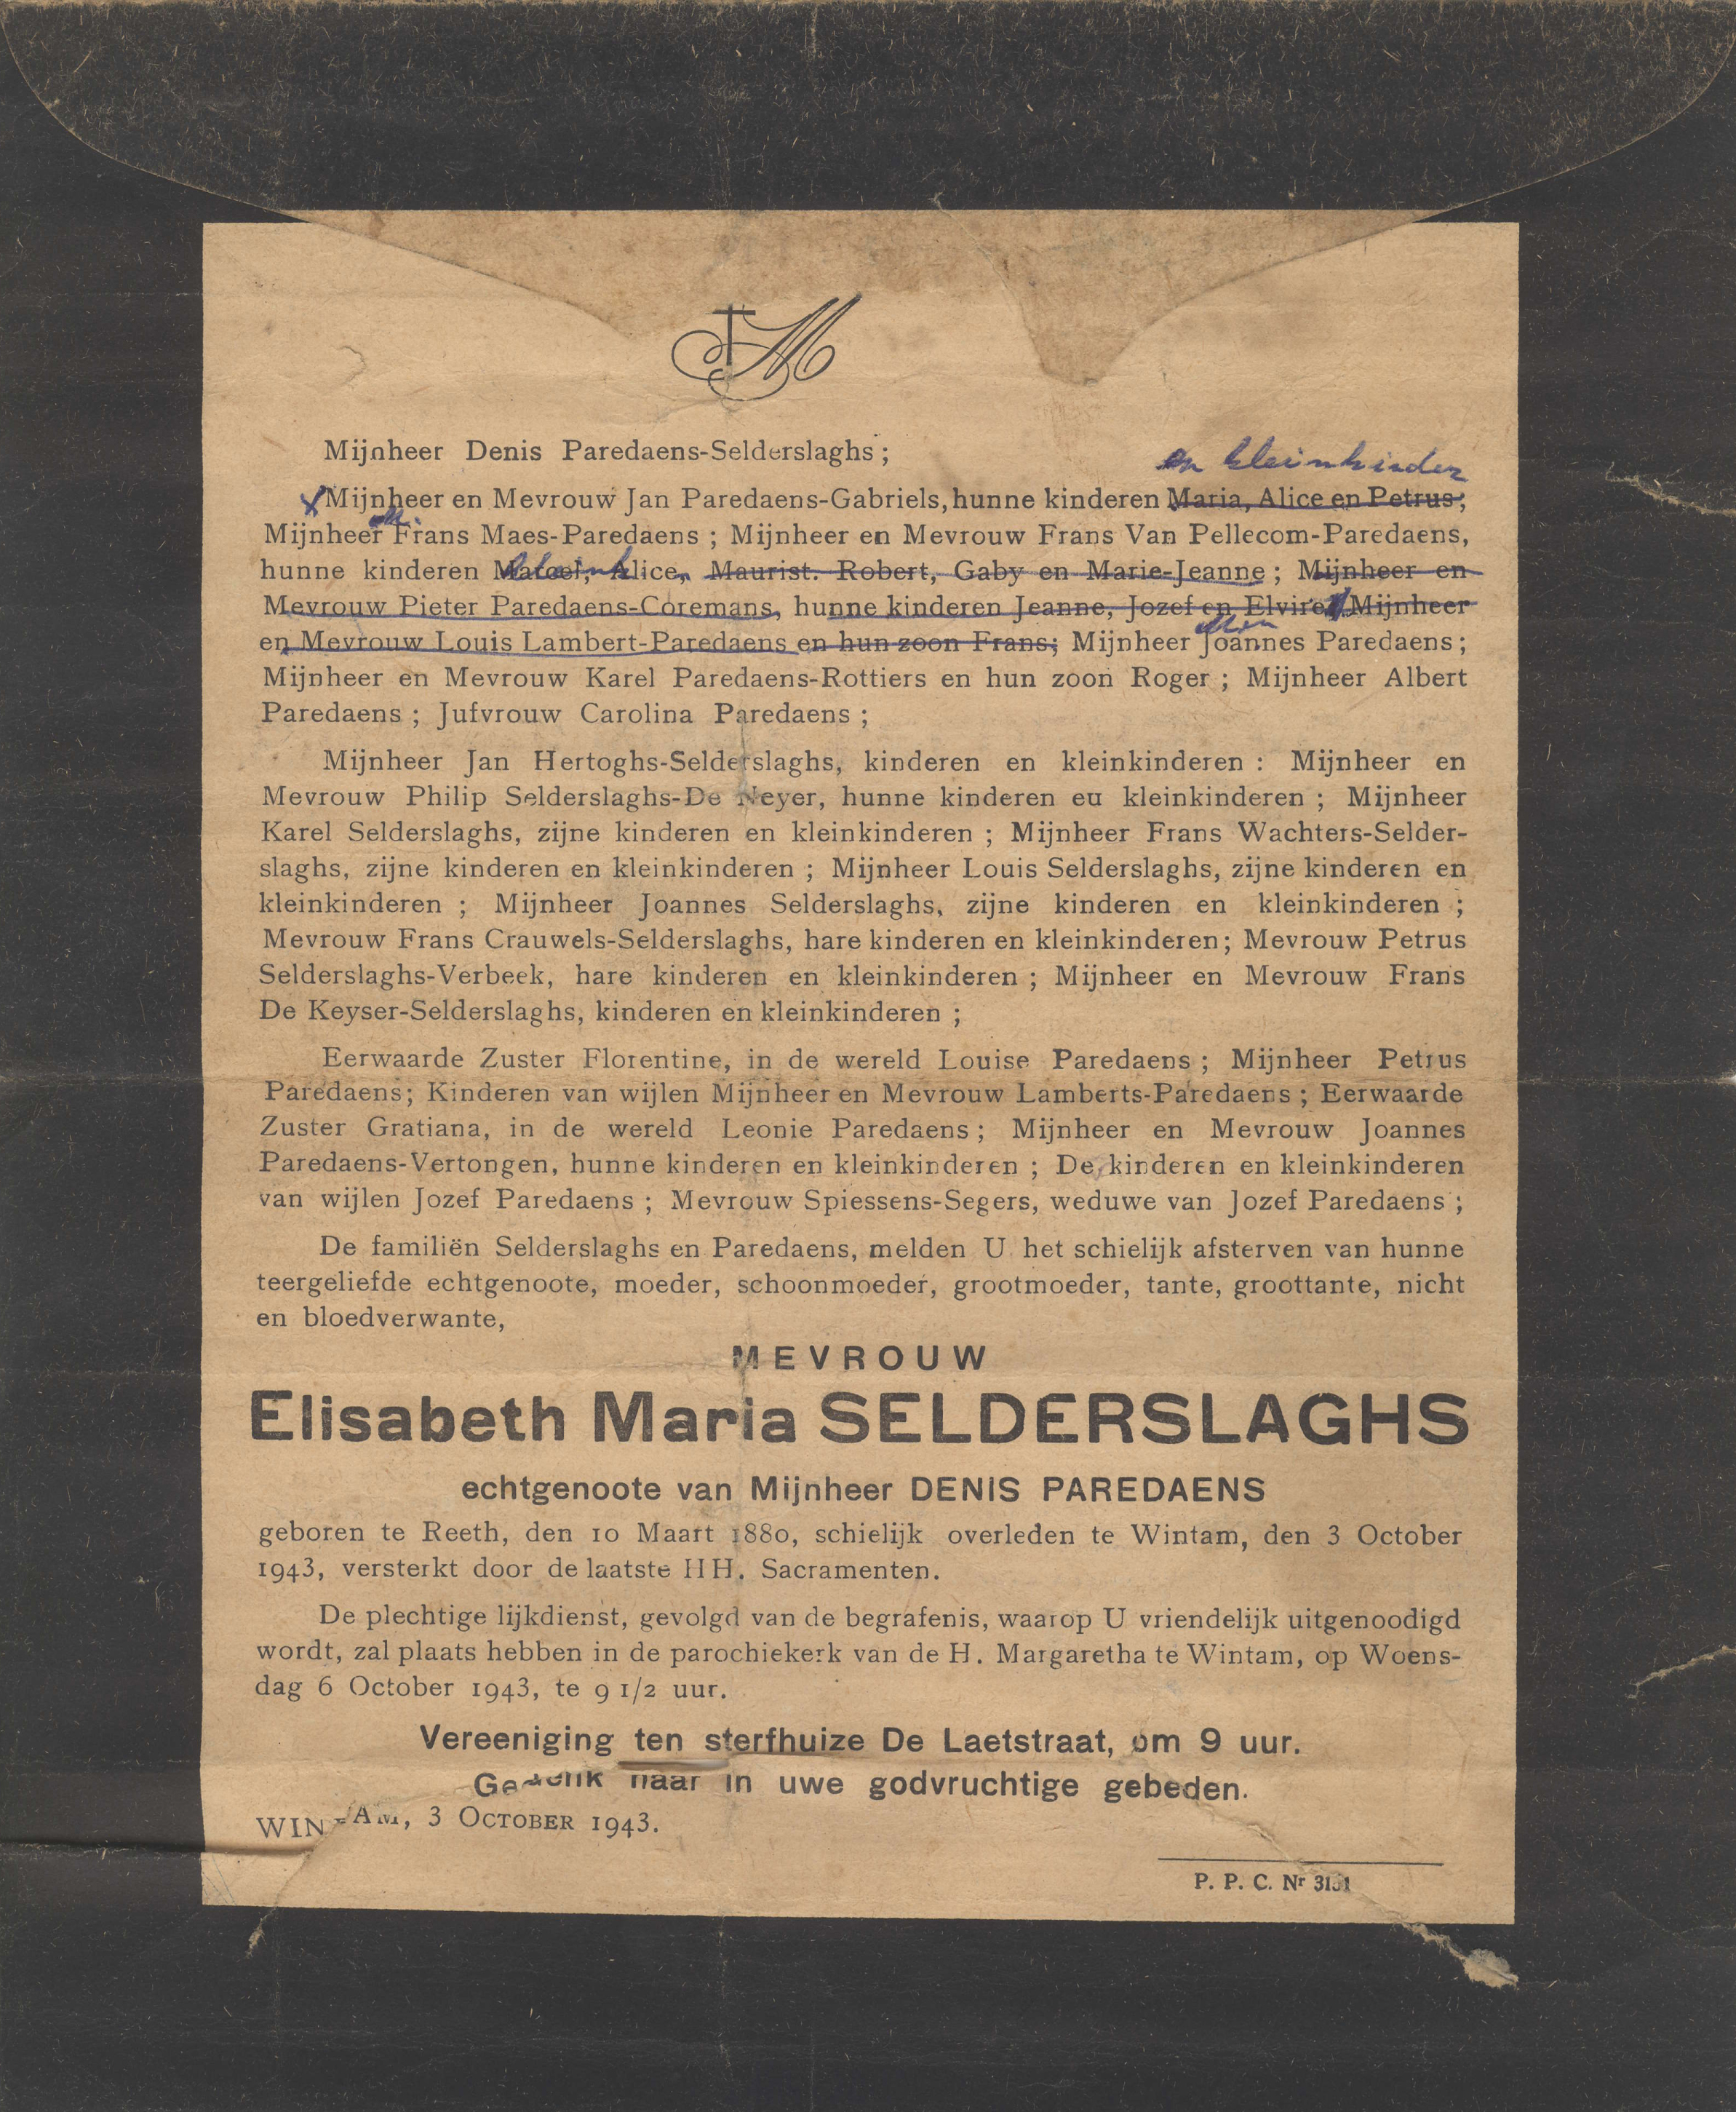 Mijnheer Denis Paredaens-Selderslaghs ;
en kleinkinder
Mijnheer en Mevrouw Jan Paredaens-Gabriels, hunne kinderen Maria, Alice en Petrus ;
Mijnheer Frans Maes-Paredaens ; Mijnheer en Mevrouw Frans Van Pellecom-Paredaens,
hunne kinderen Marcel, Alice, Maurist. Robert, Gaby en Marie-Jeanne ; Mijnheer en
Mevrouw Pieter Paredaens-Coremans, hunne kinderen Jeanne, Jozef en Elvire ; Mijnheer
en Mevrouw Louis Lambert-Paredaens en hun zoon Frans ; Mijnheer Joannes Paredaens ;
Mijnheer en Mevrouw Karel Paredaens-Rottiers en hun zoon Roger ; Mijnheer Albert
Paredaens ; Jufvrouw Carolina Paredaens ;
Mijnheer Jan Hertoghs-Selderslaghs, kinderen en kleinkinderen : Mijnheer en
Mevrouw Philip Selderslaghs-De Neyer, hunne kinderen eu kleinkinderen ; Mijnheer
Karel Selderslaghs, zijne kinderen en kleinkinderen ; Mijnheer Frans Wachters-Selder-
slaghs, zijne kinderen en kleinkinderen ; Mijnheer Louis Selderslaghs, zijne kinderen en
kleinkinderen ; Mijnheer Joannes Selderslaghs, zijne kinderen en kleinkinderen ;
Mevrouw Frans Crauwels-Selderslaghs, hare kinderen en kleinkinderen ; Mevrouw Petrus
Selderslaghs-Verbeek, hare kinderen en kleinkinderen ; Mijnheer en Mevrouw Frans
De Keyser-Selderslaghs, kinderen en kleinkinderen ;
Eerwaarde Zuster Florentine, in de wereld Louise Paredaens ; Mijnheer Petrus
Paredaens ; Kinderen van wijlen Mijnheer en Mevrouw Lamberts-Paredaens ; Eerwaarde
Zuster Gratiana, in de wereld Leonie Paredaens ; Mijnheer en Mevrouw Joannes
Paredaens-Vertongen, hunne kinderen en kleinkinderen ; De kinderen en kleinkinderen
van wijlen Jozef Paredaens ; Mevrouw Spiessens-Segers, weduwe van Jozef Paredaens ;
De familiën Selderslaghs en Paredaens, melden U het schielijk afsterven van hunne
teergeliefde echtgenoote, moeder, schoonmoeder, grootmoeder, tante, groottante, nicht
en bloedverwante,
MEVROUW
Elisabeth Maria SELDERSLAGHS
echtgenoote van Mijnheer DENIS PAREDAENS
geboren te Reeth, den 10 Maart 1880, schielijk overleden te Wintam, den 3 October
1943, versterkt door de laatste HH. Sacramenten.
De plechtige lijkdienst, gevolgd van de begrafenis, waarop U vriendelijk uitgenoodigd
wordt, zal plaats hebben in de parochiekerk van de H. Margaretha te Wintam, op Woens-
dag 6 October 1943, te 9 1/2 uur.
Vereeniging ten sterfhuize De Laetstraat, om 9 uur.
Gedenk haar in uwe godvruchtige gebeden.
WINTAM, 3 OCTOBER 1943.
P. P. C. Nr